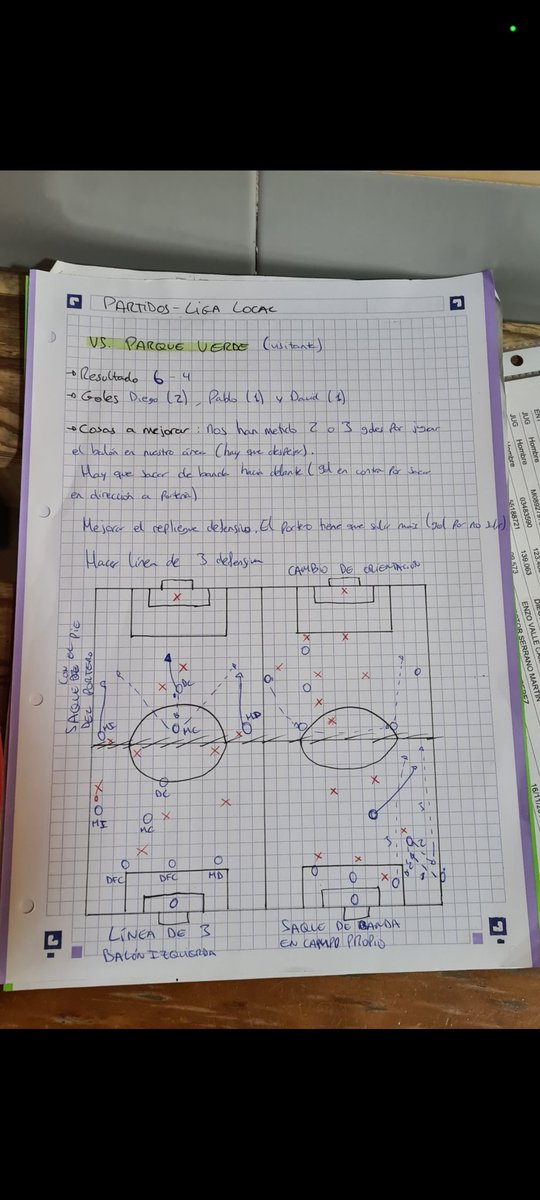 PARTIDOS - LIGA LOCAL
VS. PARQUE VERDE (visitante)
→ Resultado 6 - 4
→ Goles Diego (2), Pablo (1) y David (1)
→ Cosas a mejorar: Nos han metido 2 o 3 goles por jugar
el balón en nuestro área (hay que despejar).
Hay que sacar de banda hacia delante (gol en contra por sacar
en dirección a portería)
Mejorar el repliegue defensivo. El portero tiene que salir más (gol por no salir)
Hacer línea de 3 defensiva
CAMBIO DE ORIENTACIÓN
SAQUE
CON EL PIE
DEL PORTERO
DC
MI
MC
MD
DC
MI
MC
DFC
DFC
MD
LÍNEA DE 3
BALÓN IZQUIERDA
SAQUE DE BANDA
EN CAMPO PROPIO
Hombre
Hombre
03483590
55188721
139.063
ENZO VALLE
SERRANO MARTIN
16/11/20